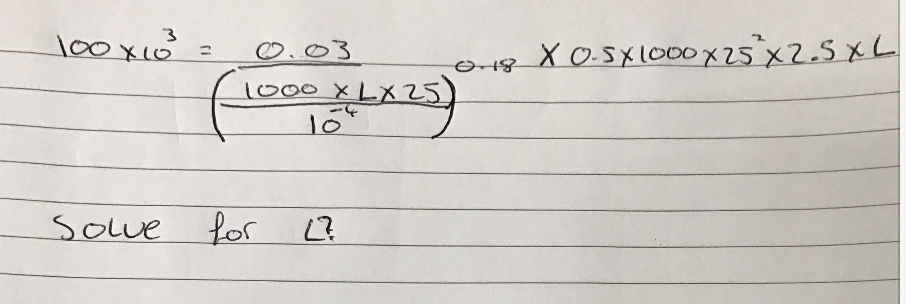 100 × 10³ = 0.03 / (1000 × L × 25 / 10⁻⁴)^0.18 × 0.5 × 1000 × 25² × 2.5 × L
Solve for L?